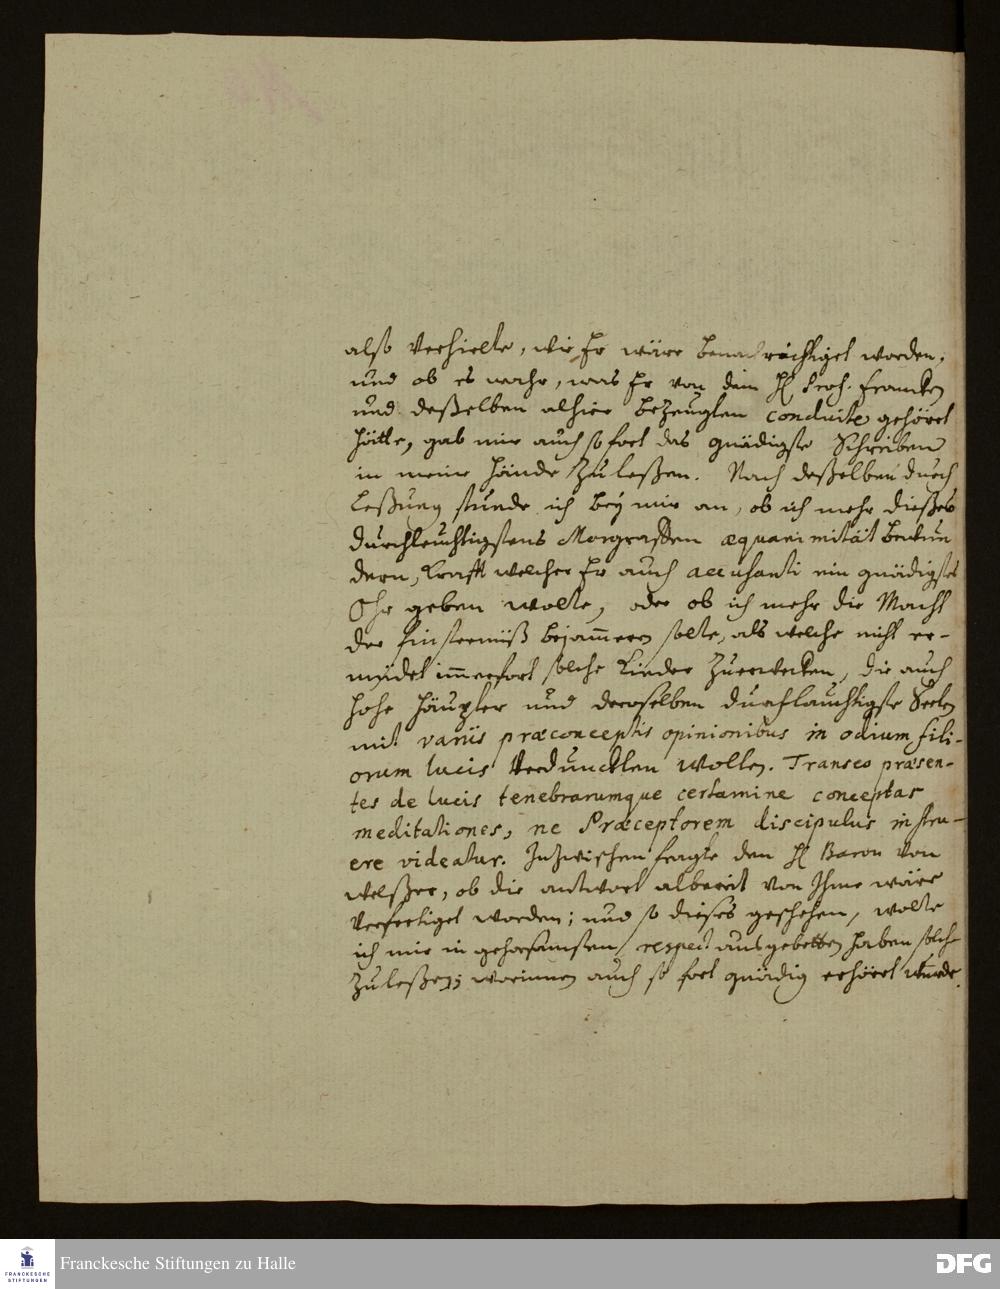 also verhielte, wie Er wäre benachrichtiget worden,
und ob es wahr, was Er von dem H Prof. Francken
und deßelben alhier bezeugten conduite gehöret
hätte, gab mir auch so fort das gnädigste Schreiben
in meine Hände zu leßen. Nach deßelben durch
leßung stunde ich bey mir an, ob ich mehr dießes
durchleuchtigstens Marggraffen æquanimität bewun
dern, krafft welcher Er auch accusanti ein gnädigstes
Ohr geben wolte, oder ob ich mehr die Macht
der finsterniß bejam̄ern solte, als welche nicht er-
müdet im̄erfort solche Kinder zuerwecken, die auch
hohe Häupter und deroselben durchlauchtigste Seelen
mit variis præconceptis opinionibus in odium fili-
orum lucis verduncklen wollen. Transeo præsen-
tes de lucis tenebrarumque certamine conceptas
meditationes, ne Præceptorem discipulus instru-
ere videatur. Inzwischen fragte den H Baron von
Welßer, ob die antwort albereit von Ihme wäre
verfertiget worden; und so dieses geschehen, wolte
ich mir in gehorsamsten respect ausgebetten haben solche
zu leßen; worinnen auch so fort gnädig erhöret wurde.
Franckesche Stiftungen zu Halle
FRANCKESCHE
STIFTUNGEN
DFG